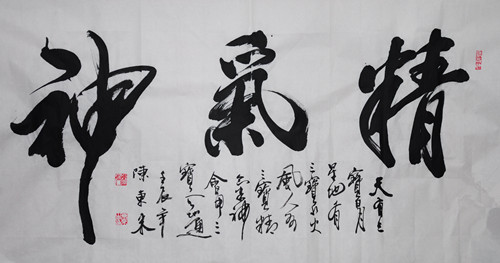 精氣神
天有三
寶日月
星地有
三寶水火
風人有
三寶精
氣神
會中三
寶通
壬辰年
陳東